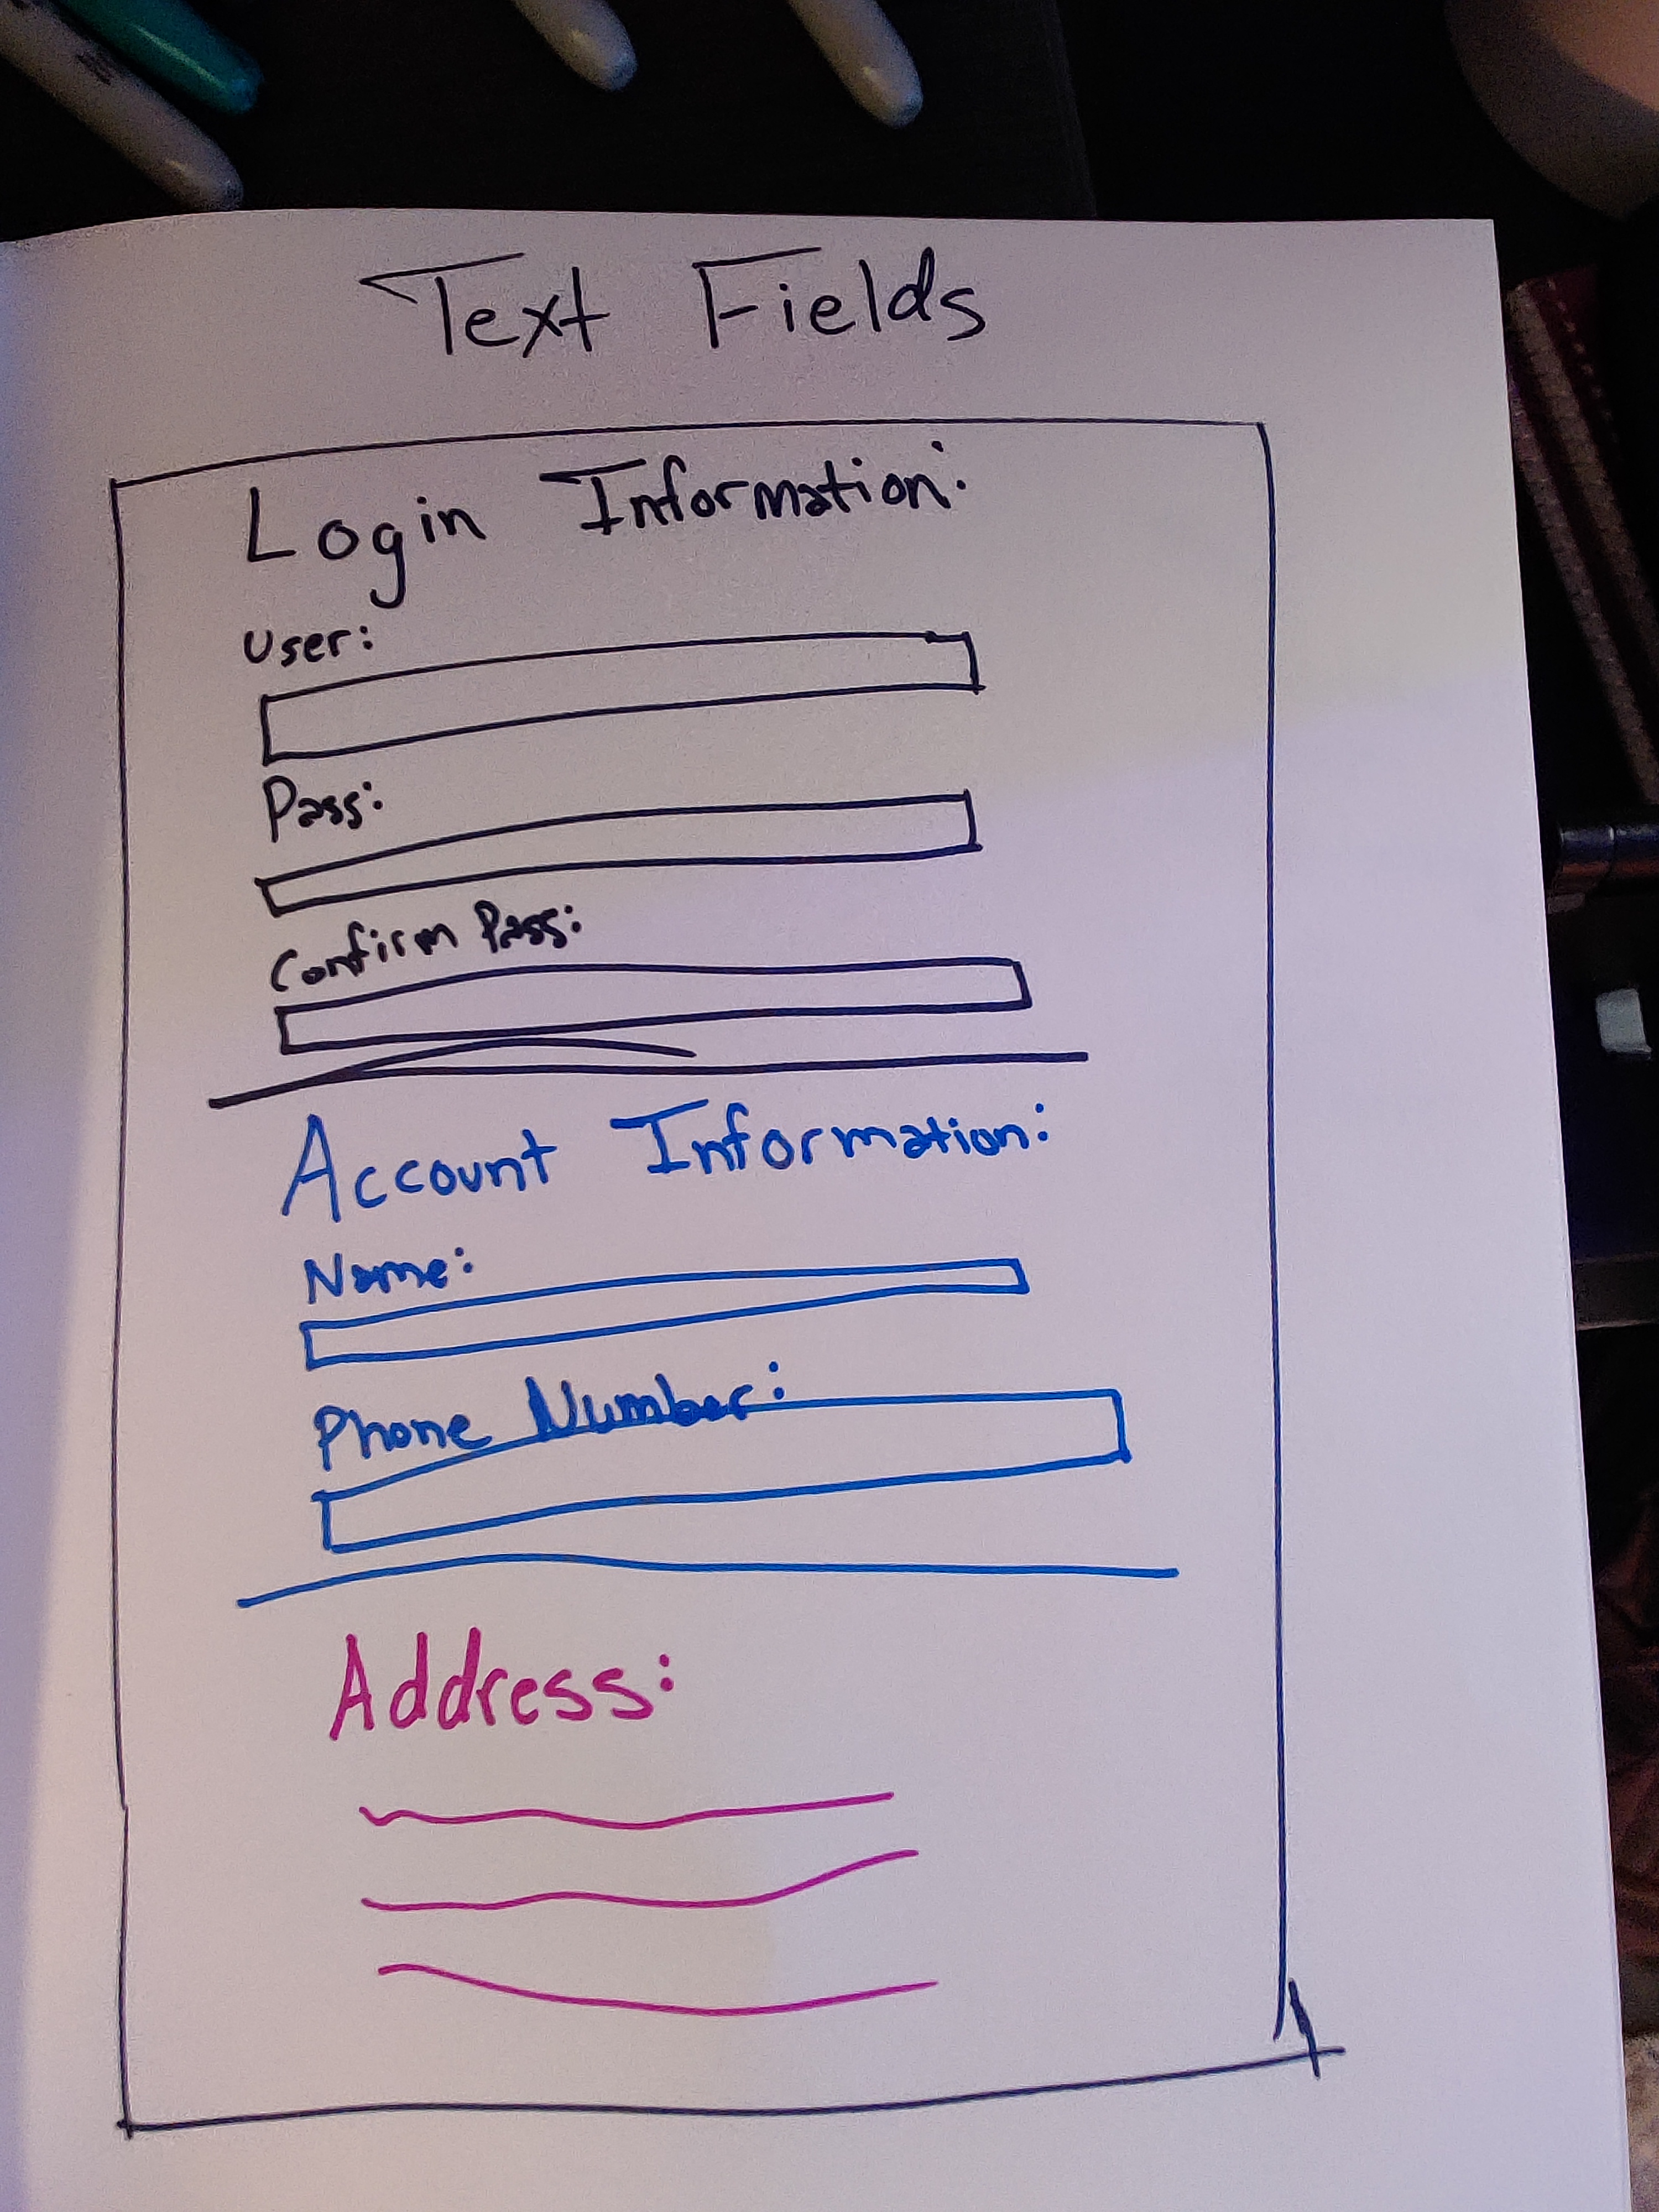 Text Fields
Login Information:
User:
Pass:
Confirm Pass:
Account Information:
Name:
Phone Number:
Address: